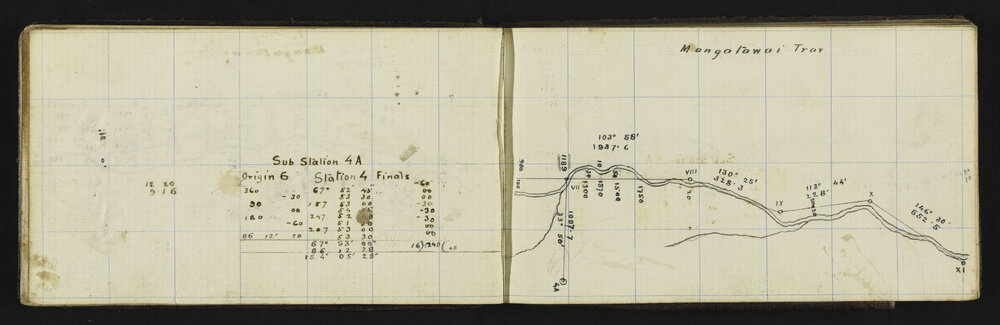 12 20
9 1 6
Sub Station 4A
Origin 6 Station 4 Finals
-60
360 67° 52' 45" 00
-30 53 30 00
90 157 53 00 -30
00 54 00 -30
180 247 52 -30
-60 51 00 00
207 53 00 00
86 12' 20 53 30
67° 53' 00" 16)1240(
86 12 28
154° 05' 28"
Mangatawai Trav
103° 58'
1937.6
900
1189
1300
1370
1500
1750
VIII
130° 25'
328.3
113° 44'
228.
IX
X
146° 30'
652.5
XI
22
1007.7
33° 50'
4A